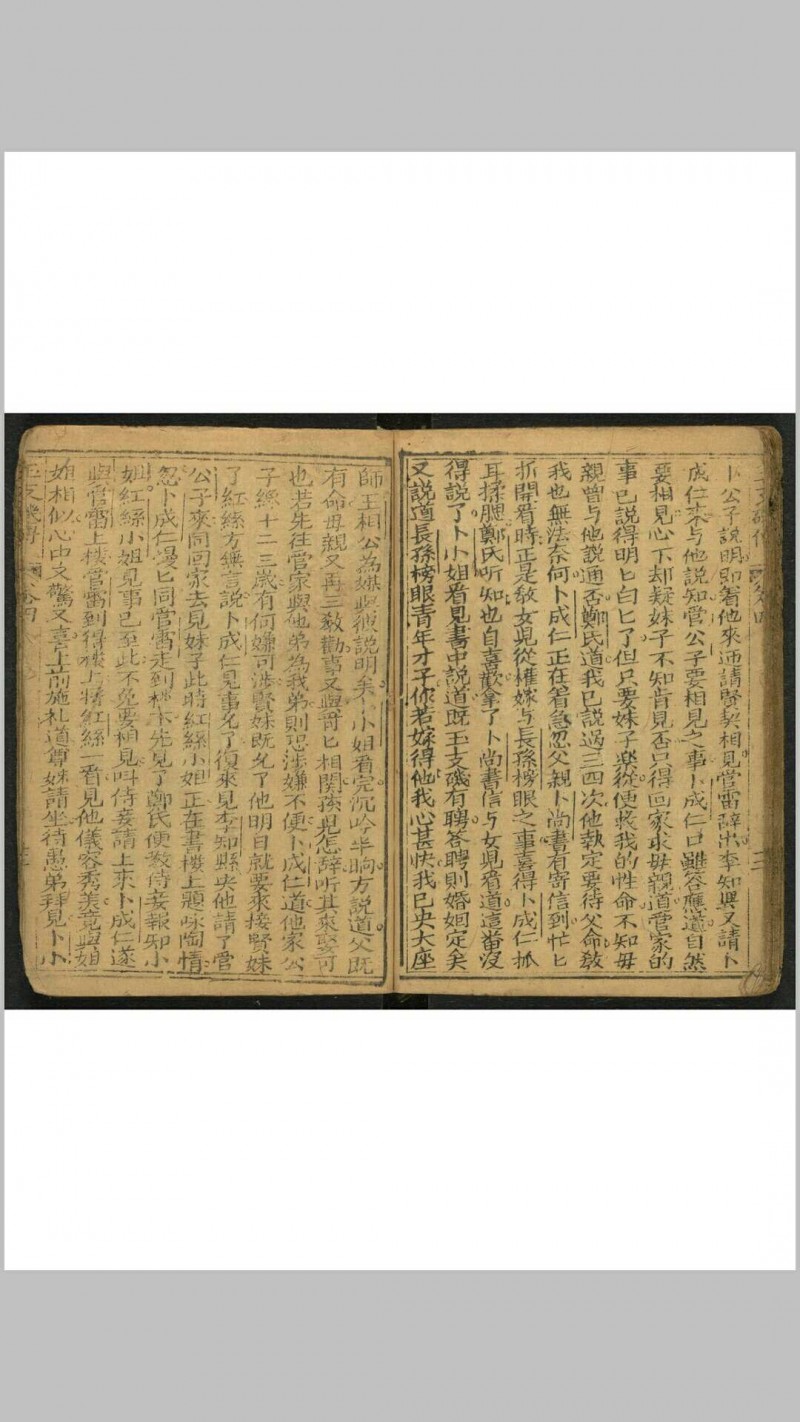 卜公子說明即着他來通請賢契相見管雷辭出李知縣又請卜
成仁來与他說知管公子要相見之事卜成仁口雖答應道自然
要相見心下却疑妹子不知肯見否只得回家求母親道管家的
事已說得明匕白匕了但只要妹子樂從便救我的性命不知毋
親曾与他說通否鄭氏道我已說過三四次他執定要待父命敎
我也無法奈何卜成仁正在着急忽父親卜尚書有寄信到忙匕
拆開看時正是敎女児從權嫁与長孫榜眼之事喜得卜成仁抓
耳揉腮鄭氏听知也自喜歡拿了卜尚書信与女児看道這番沒
得說了卜小姐看見書中說道既玉支磯有聘答聘則婚姻定矣
又說道長孫榜眼青年才子你若嫁得他我心甚快我已央大座
師王相公為媒與彼說明矣卜小姐看完沉吟半晌方說道父既
有命毋親又再三敎勸事又與哥匕相関孩児怎辞听其來娶可
也若先往管家與他弟為我弟則恐涉嫌不便卜成仁道他家公
子絲十二三歲有何嫌可涉賢妹既允了他明日就要來接賢妹
了紅絲方無言說卜成仁見事允了復來見李知縣央他請了管
公子來同回家去見妹子此時紅絲小姐正在書樓上題咏陶情
忽卜成仁漫匕同管雷走到樓下先見了鄭氏便敎侍妾報知小
姐紅絲小姐見事已至此不免要相見叫侍妾請上來卜成仁遂
與管雷上樓管雷到得樓上將紅絲一看見他儀容秀美竟與姐
姐相似心中又驚又喜上前施礼道尊妹請坐待愚弟拜見卜小
玉支磯傳 卷四